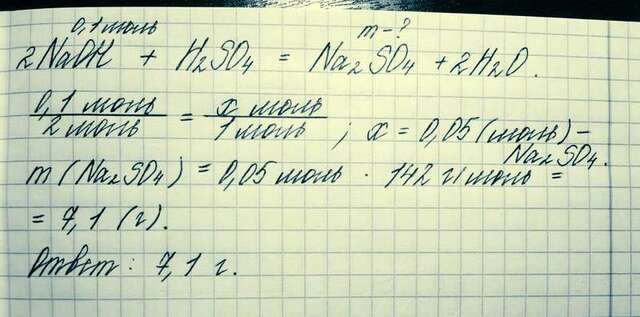 0,1 моль m-?
2NaOH + H2SO4 = Na2SO4 + 2H2O.
0,1 моль / 2 моль = x моль / 1 моль ; x = 0,05 (моль) –
Na2SO4.
m (Na2SO4) = 0,05 моль · 142 г/моль =
= 7,1 (г).
Ответ: 7,1 г.